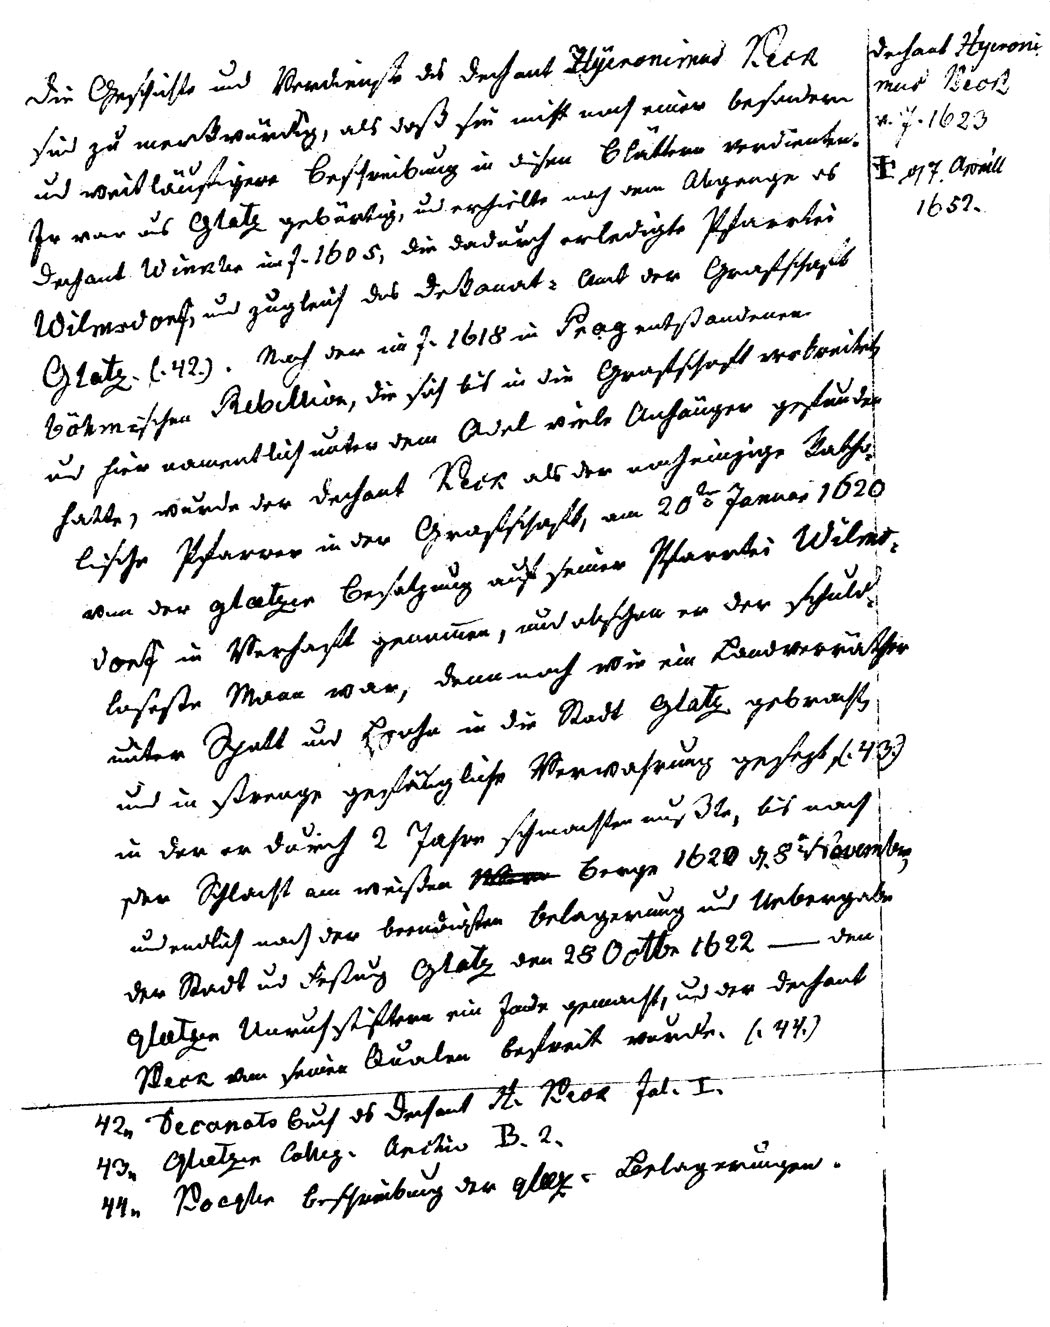 Die Geschichte und Verdienste des Dechant Hÿeronimus Keck
sind zu merkwürdig, als daß sie nicht noch einer besondern
und weitläufigern Beschreibung in disen Blättern verdienten.
Er war aus Glatz gebürtig, und erhielte nach dem Abgange des
Dechant Winkler im J. 1605, die dadurch erledigte Pfarrtei
Wilmsdorf, und zugleich das Dekanat-Amt der Grafschaft
Glatz. (.42.). Nach der im J. 1618 in Prag entstandenen
böhmischen Rebellion, die sich bis in die Grafschaft verbreitet,
und hier namentlich unter dem Adel viele Anhänger gefunden
hatte, wurde der Dechant Keck als der noch einzige katho-
lische Pfarrer in der Grafschaft, am 20ten Januar 1620
von der glatzer Besatzung auf seiner Pfarrtei Wilms-
dorf in Verhaft genommen, und obschon er der schuld-
loseste Mann war, dennnoch wie ein Landverräther
unter Spott und Hohn in die Stadt Glatz gebracht,
und in strenge gefängliche Verwahrung gesetzt, (.43.)
in der er durch 2 Jahre schmachten mußte, bis nach
der Schlacht am weißen Berge 1620 d. 8t November,
und endlich nach der beendigten Belagerung und Uebergabe
der Stadt und Festung Glatz den 28 Octbr 1622 — den
glatzer Unruhstiftern ein Ende gemacht, und der Dechant
Keck von seinen Qualen befreit wurde. (.44.)
42„ Decanats Buch des Dechant H. Keck fol. I.
43„ Glatzer Colleg. Archiv B. 2.
44„ Beschreibung der glaz- Belagerungen.
Dechant Hyeroni
mus Keck
v. J. 1623
‡ d 7. Aprill
1652.